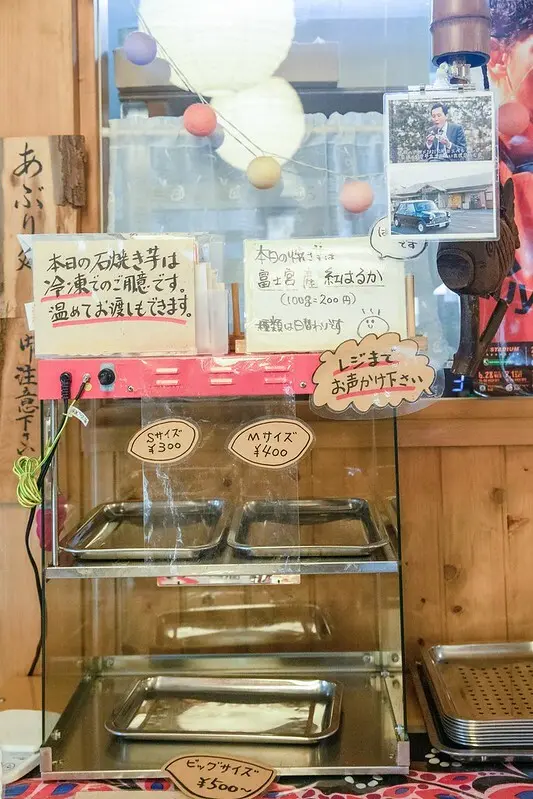 あぶり
注意下さい
本日の石焼き芋は
冷凍でのご用意です。
温めてお渡しもできます。
本日の焼き芋は
富士宮産 紅はるか
(100g=200円)
種類は日替わりです
です
レジまで
お声かけ下さい
Sサイズ
¥300
Mサイズ
¥400
ビッグサイズ
¥500〜
STADIUM